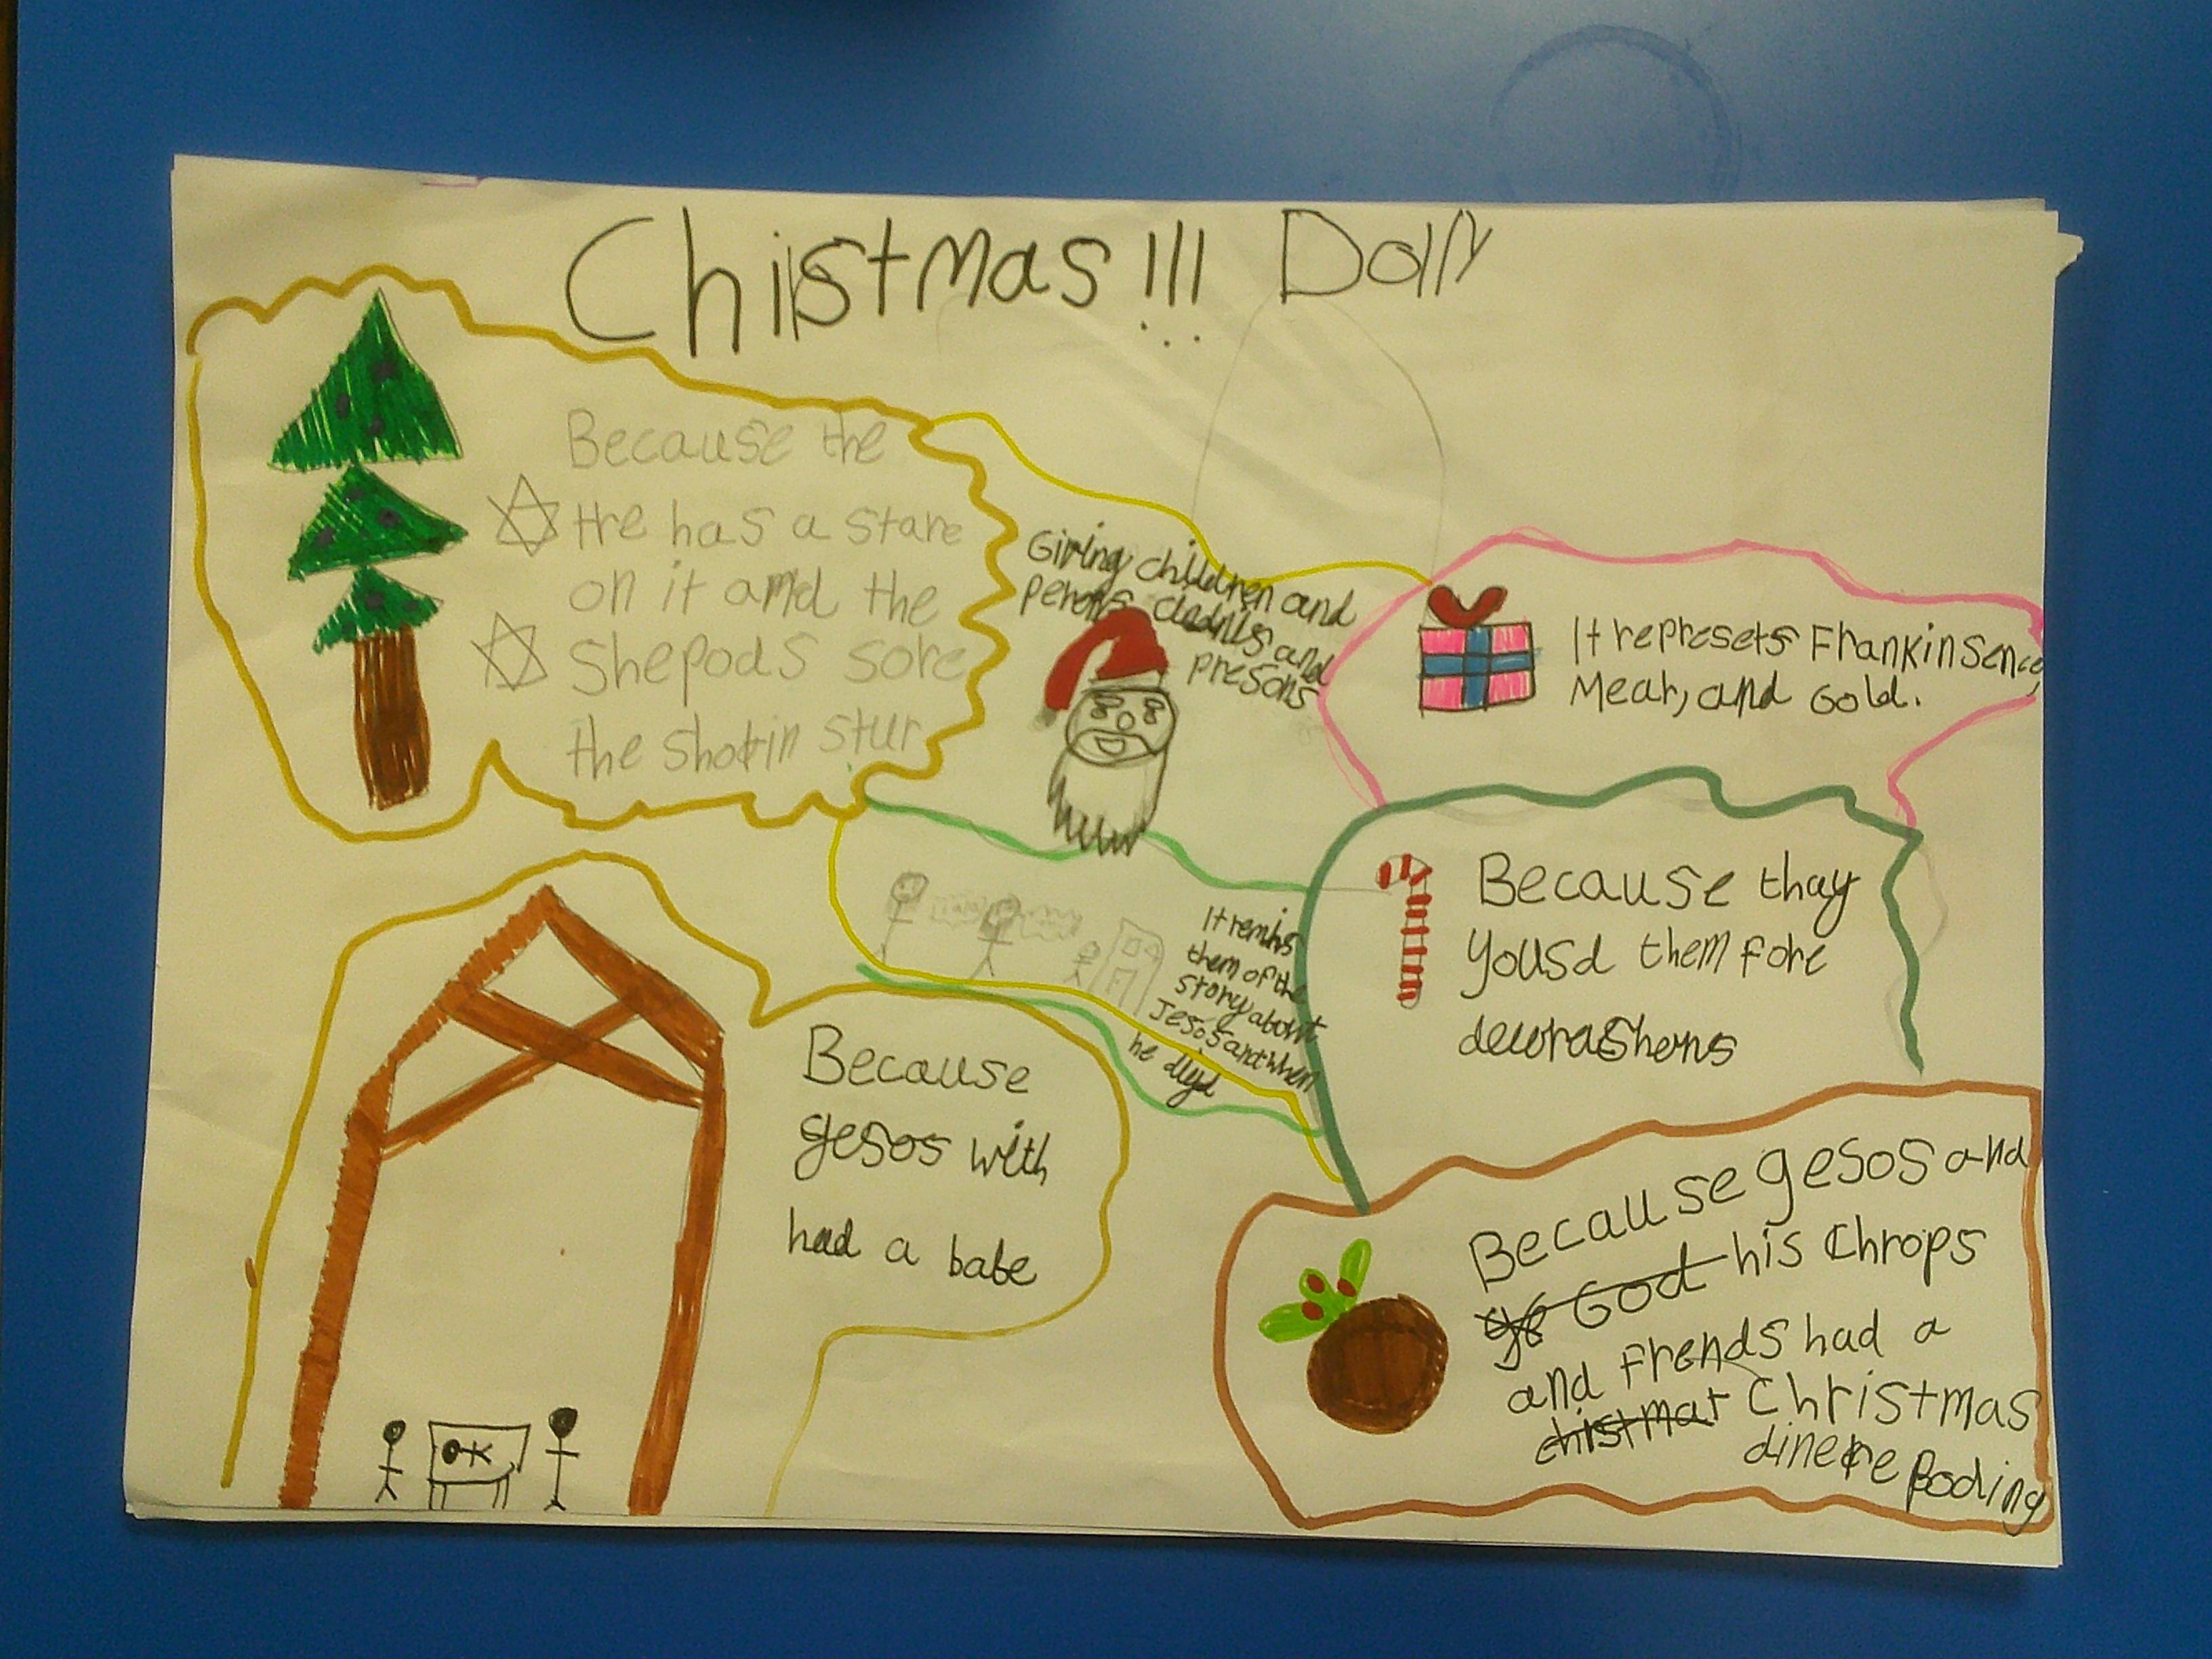 Chistmas!!! Dolly
Because the
tre has a stare
on it and the
Shepods sore
the shotin stur
Giving children and
and
presons
It represets Frankinsence,
Mear, and Gold.
Because thay
yousd them fore
It remins
them of the
story about
Jesos and when
he diyd
Because
gesos with
had a babe
Because gesos and
God his Chrops
and frends had a
chistmat Christmas
dinere Poding